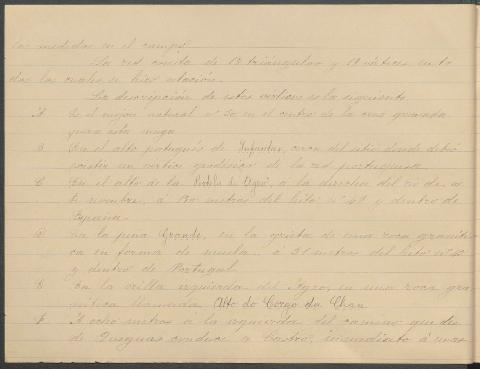 las medidas en el campo
La red consta de 13 triángulos y 19 vértices en to
das las cuales se hizo estación.
La descripción de estos vértices es la siguiente.
A Es el mojon natural nº 50 en el centro de la cruz grabada
para esta
B En el alto portugués de cerca del sitio donde debió
existir un vertice geodésico de la red portuguesa
C En el alto de la Portela de a la derecha del rio de es
te nombre, á 130 metros del hito nº 49 y dentro de
España.
D En la peña Grande, en la grieta de una roca graníti
ca en forma de muela, á 31 metros del hito nº
y dentro de Portugal
E En la orilla izquierda del en una roca gra
nítica llamada Alto do da Chan
F A ocho metros á la izquierda del camino que des
de conduce a Castro, inmediato á unas